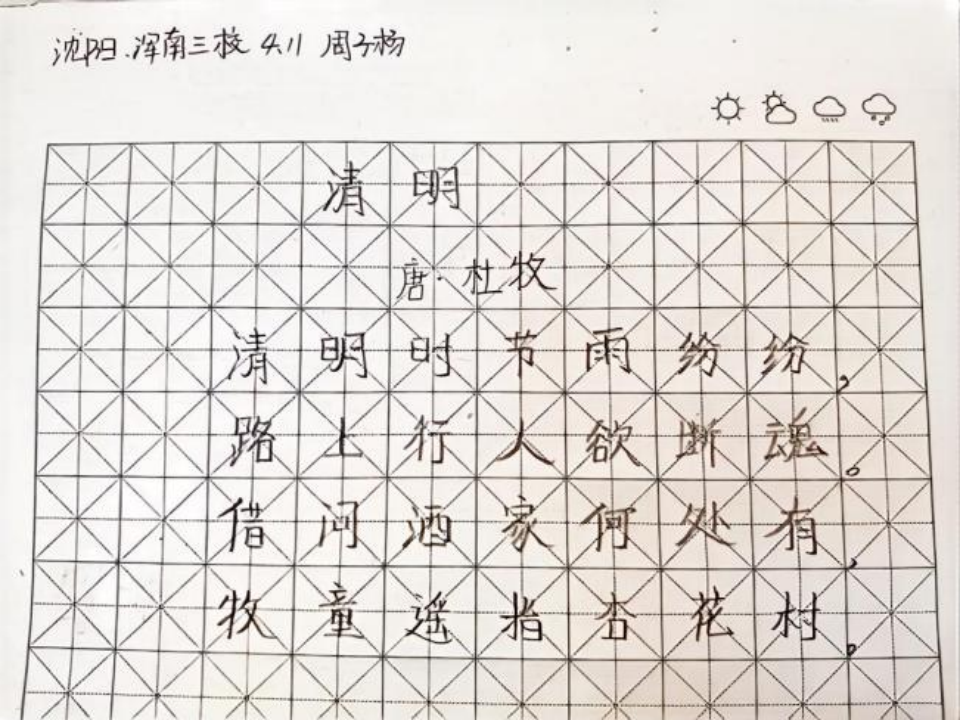 沈阳.浑南三校 4.11 周子杨
清明
唐·杜牧
清明时节雨纷纷，
路上行人欲断魂。
借问酒家何处有，
牧童遥指杏花村。